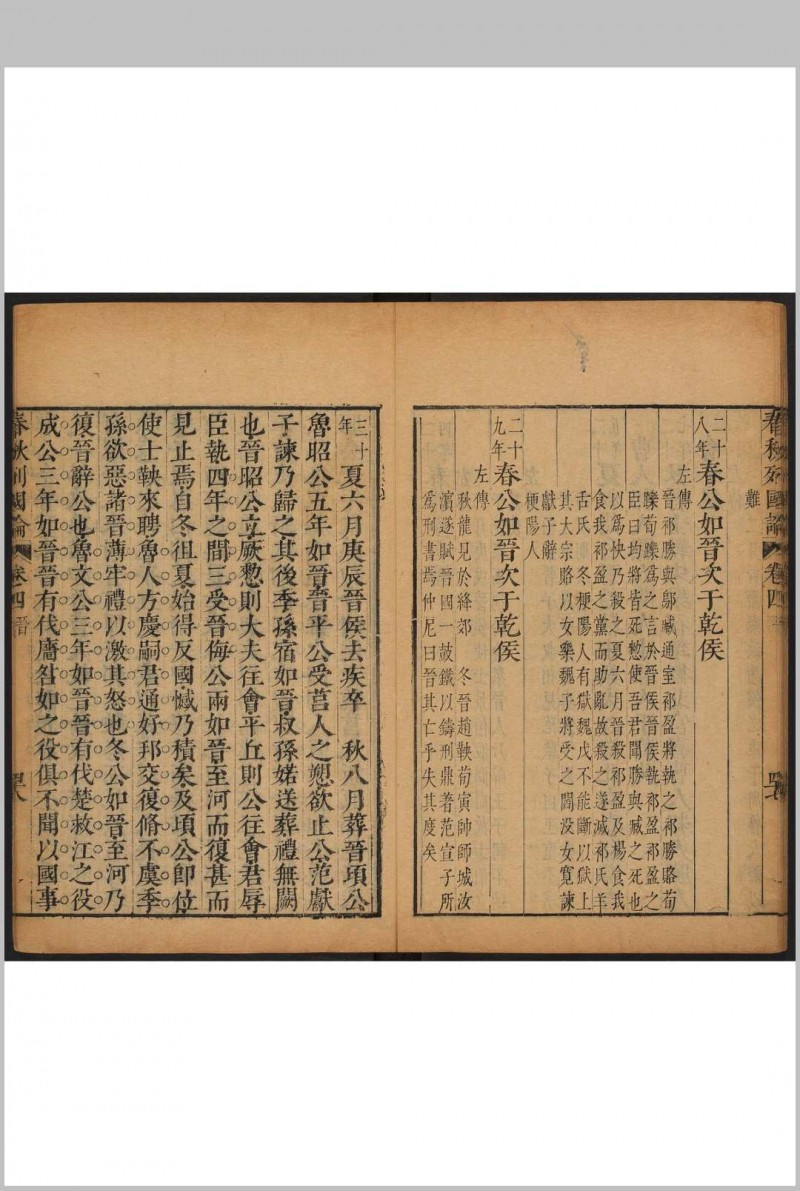 難
二十八年春公如晉次于乾侯
左傳
晉祁勝與鄔臧通室祁盈將執之祁勝賂荀
躒荀躒爲之言於晉侯晉侯執祁盈祁盈之
臣曰均將皆死憖使吾君聞勝與臧之死也
以爲快乃殺之夏六月晉殺祁盈及楊食我
食我祁盈之黨而助亂故殺之遂滅祁氏羊
舌氏　冬梗陽人有獄魏戊不能斷以獄上
其大宗賂以女樂魏子將受之閻没女寬諫
獻子辭
梗陽人
二十九年春公如晉次于乾侯
左傳
秋龍見於絳郊　冬晉趙鞅荀寅帥師城汝
濱遂賦晉國一鼓鐵以鑄刑鼎著范宣子所
爲刑書焉仲尼曰晉其亡乎失其度矣
三十年夏六月庚辰晉侯去疾卒　秋八月葬晉頃公
魯昭公五年如晉晉平公受莒人之愬欲止公范獻
子諫乃歸之其後季孫宿如晉叔孫婼送葬禮無闕
也晉昭公立厥憖則大夫往會平丘則公往會君辱
臣執四年之間三受晉侮公兩如晉至河而復甚而
見止焉自冬徂夏始得反國憾乃積矣及頃公卽位
使士鞅來聘魯人方慶嗣君通好邦交復脩不虞季
孫欲惡諸晉薄牢禮以激其怒也冬公如晉至河乃
復晉辭公也魯文公三年如晉晉有伐楚救江之役
成公三年如晉晉有伐廧咎如之役俱不聞以國事
春秋列國論
卷四
春秋列國論
卷四